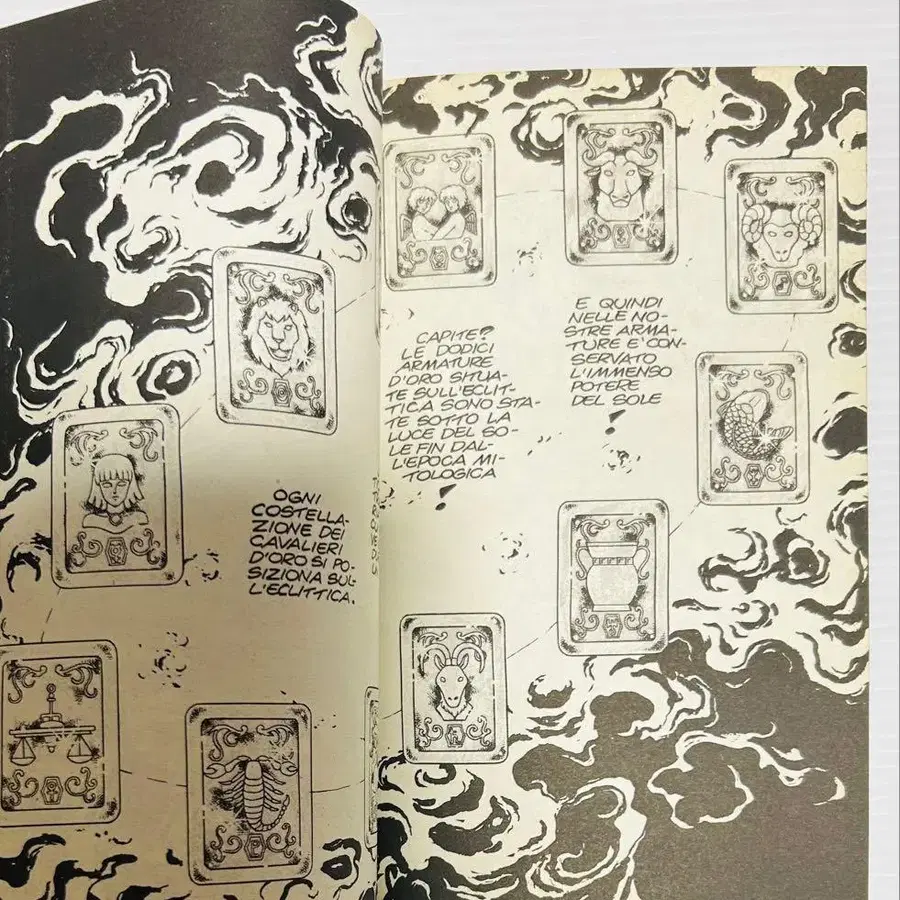 OGNI
COSTELLA-
ZIONE DEI
CAVALIERI
D'ORO SI PO-
SIZIONA SUL-
L'ECLITTICA.
CAPITE?
LE DODICI
ARMATURE
D'ORO SITUA-
TE SULL'ECLIT-
TICA SONO STA-
TE SOTTO LA
LUCE DEL SO-
LE FIN DAL-
L'EPOCA MI-
TOLOGICA
E QUINDI
NELLE NO-
STRE ARMA-
TURE E' CON-
SERVATO
L'IMMENSO
POTERE
DEL SOLE